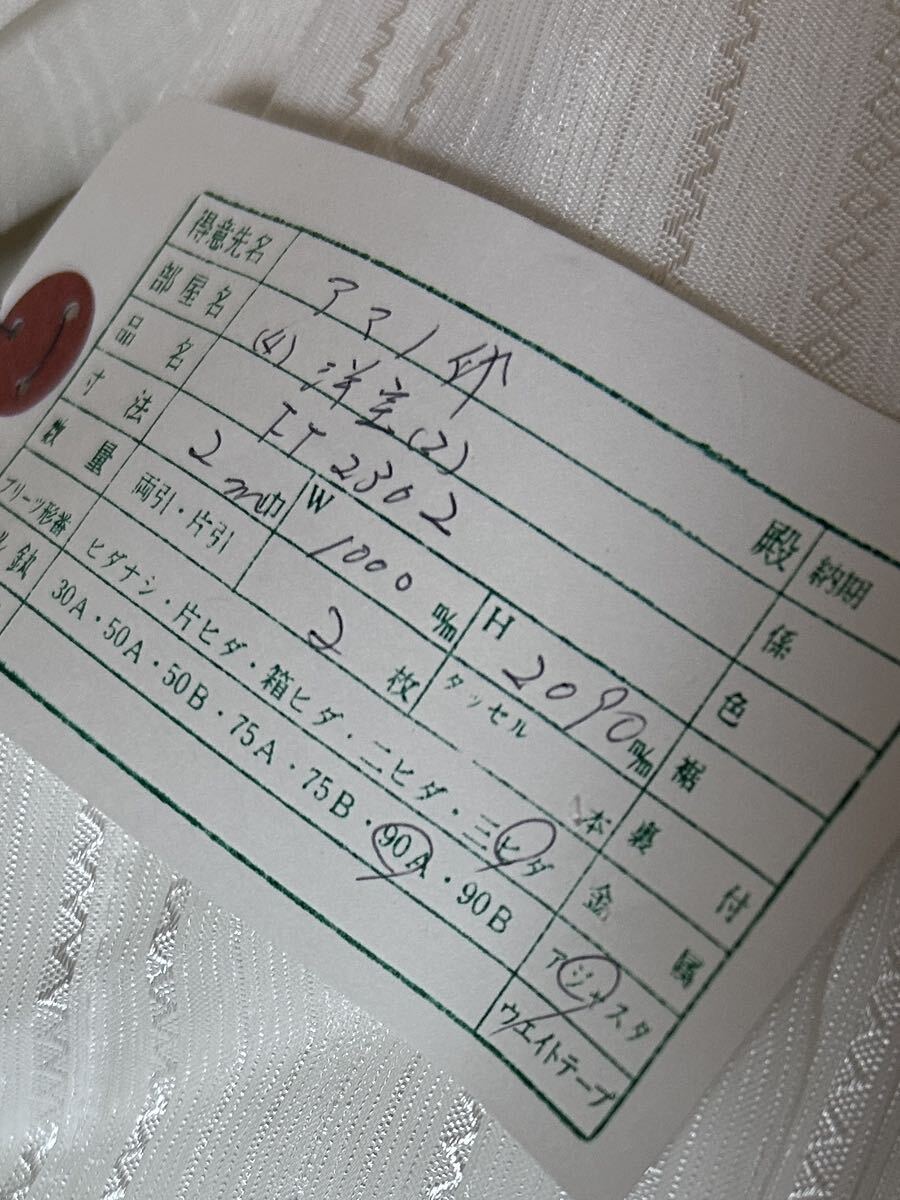 得意先名 殿 納期
部屋名 (4) 洋室(2) 係
品名 FT 2302 色
寸法 2m巾 W 1000 m/m H 2090 m/m 裾
数量 両引・片引 2枚 タッセル 本 裏付
プリーツ形番 ヒダナシ・片ヒダ・箱ヒダ・二ヒダ・三ヒダ 金属
30A・50A・50B・75A・75B・90A・90B アジャスタ
ウエイトテープ